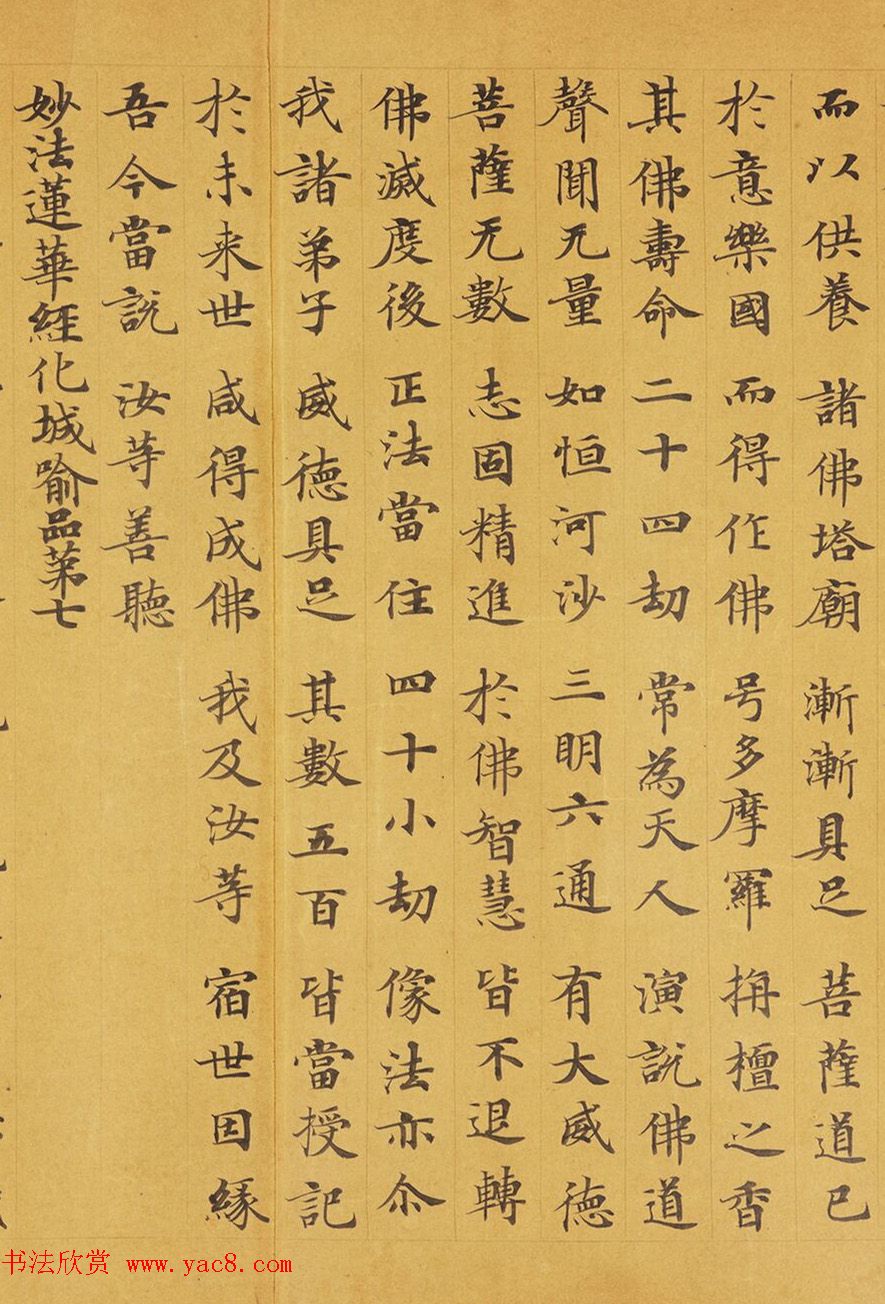 而以供養 諸佛塔廟 漸漸具足 菩薩道已
於意樂國 而得作佛 号多摩羅 栴檀之香
其佛壽命 二十四劫 常為天人 演說佛道
聲聞无量 如恒河沙 三明六通 有大威德
菩薩无數 志固精進 於佛智慧 皆不退轉
佛滅度後 正法當住 四十小劫 像法亦尒
我諸弟子 威德具足 其數五百 皆當授記
於未来世 咸得成佛 我及汝等 宿世因緣
吾今當說 汝等善聽
妙法蓮華經化城喻品第七
书法欣赏 www.yac8.com